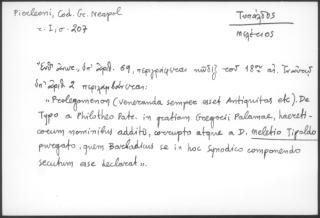 Pierleoni, Cod. Gr. Neapol
τ. I, σ. 207
Τυπάλδος
Μελέτιος
"Ἐνθ' ὑπ' ἀριθ. 69, περιγράφεται κώδιξ τοῦ 18ου αἰ.
ὑπ' ἀριθ. 2 περιλαμβάνεται:
"Prolegomenon (Veneranda semper esset Antiquitas etc). De
Typo a Philotheo Patr. in gratiam Gregorii Palamae, haereti-
corum nominibus addito, corrupto atque a D. Meletio Tipaldo
purgato, quem Barhadius se in hoc Synodico componendo
secutum esse declarat".